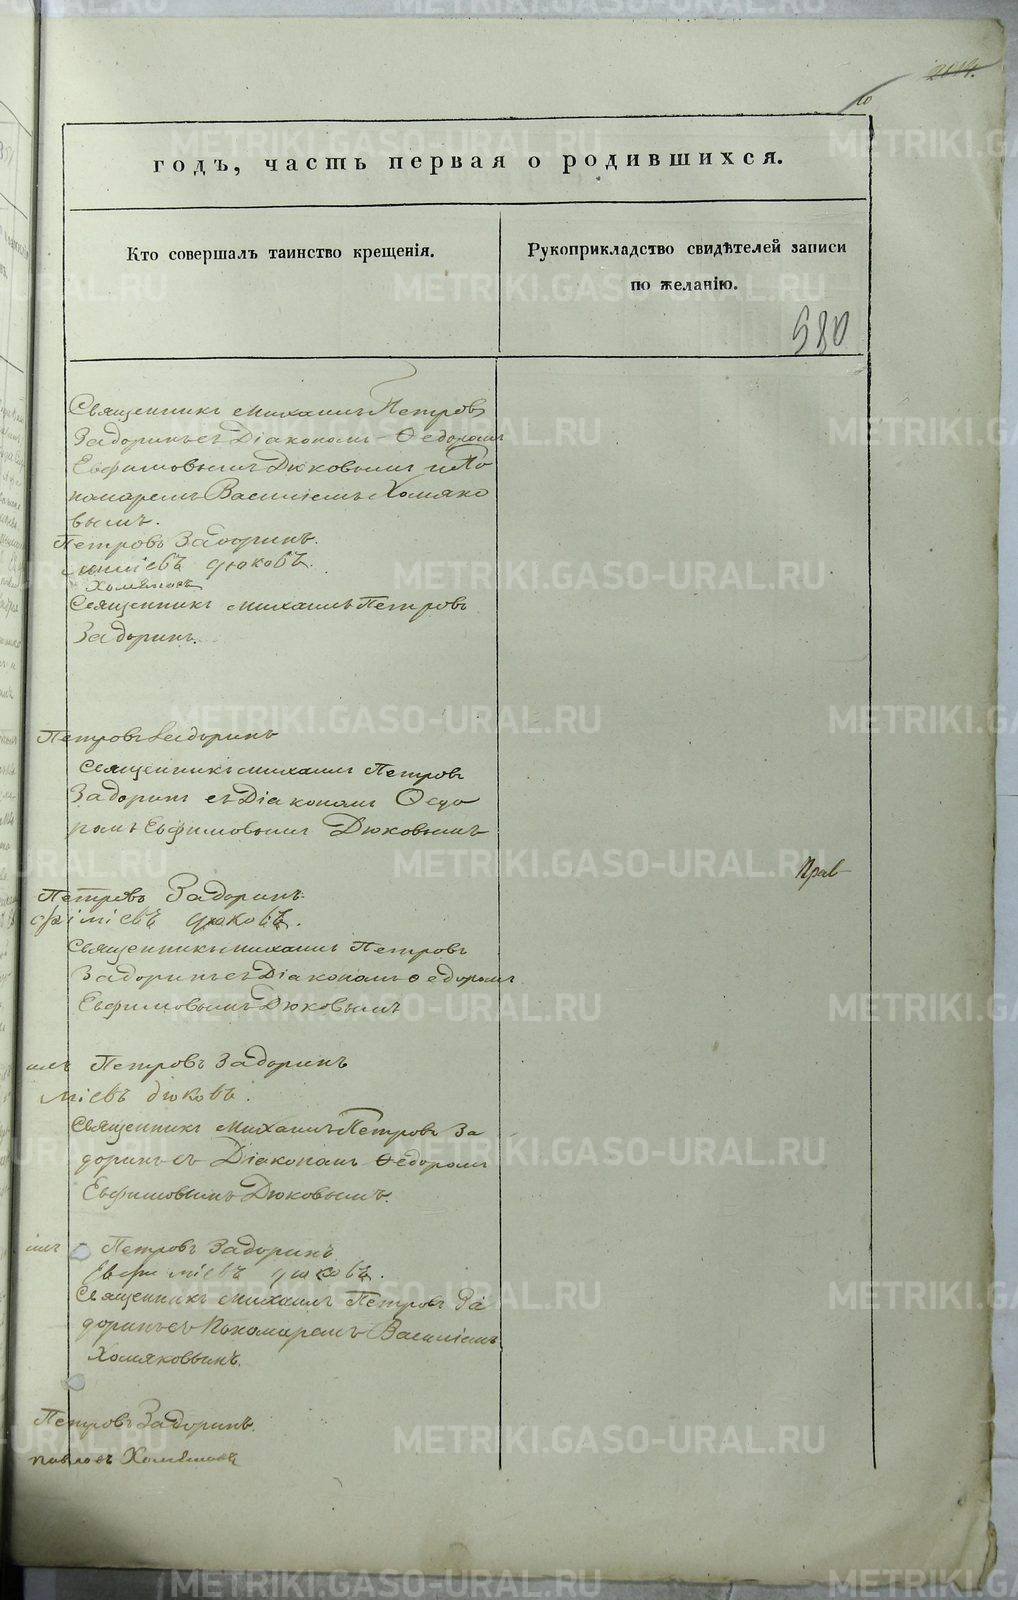 10
годъ, часть первая о родившихся.
Кто совершалъ таинство крещенія.
Рукоприкладство свидѣтелей записи
по желанію.
580
Священникъ Михаилъ Петровъ
Задоринъ съ Діакономъ Ѳедоромъ
Евфимовымъ Дюковымъ и По
номаремъ Василіемъ Хомяко
вымъ.
Петровъ Задоринъ.
міевъ Дюковъ.
Хомяковъ
Священникъ Михаилъ Петровъ
Задоринъ.
Петровъ Задоринъ
Священникъ Михаилъ Петровъ
Задоринъ съ Діакономъ Ѳедо
ромъ Евфимовымъ Дюковымъ
Прав
Петровъ Задоринъ.
фиміевъ Дюковъ.
Священникъ Михаилъ Петровъ
Задоринъ съ Діакономъ Ѳедоромъ
Евфимовымъ Дюковымъ
илъ Петровъ Задоринъ
міевъ Дюковъ.
Священникъ Михаилъ Петровъ За
доринъ съ Діакономъ Ѳедоромъ
Евфимовымъ Дюковымъ.
илъ Петровъ Задоринъ
Евфиміевъ Дюковъ.
Священникъ Михаилъ Петровъ За
доринъ съ Пономаремъ Василіемъ
Хомяковымъ.
Петровъ Задоринъ.
Павловъ Хомяковъ
METRIKI.GASO-URAL.RU